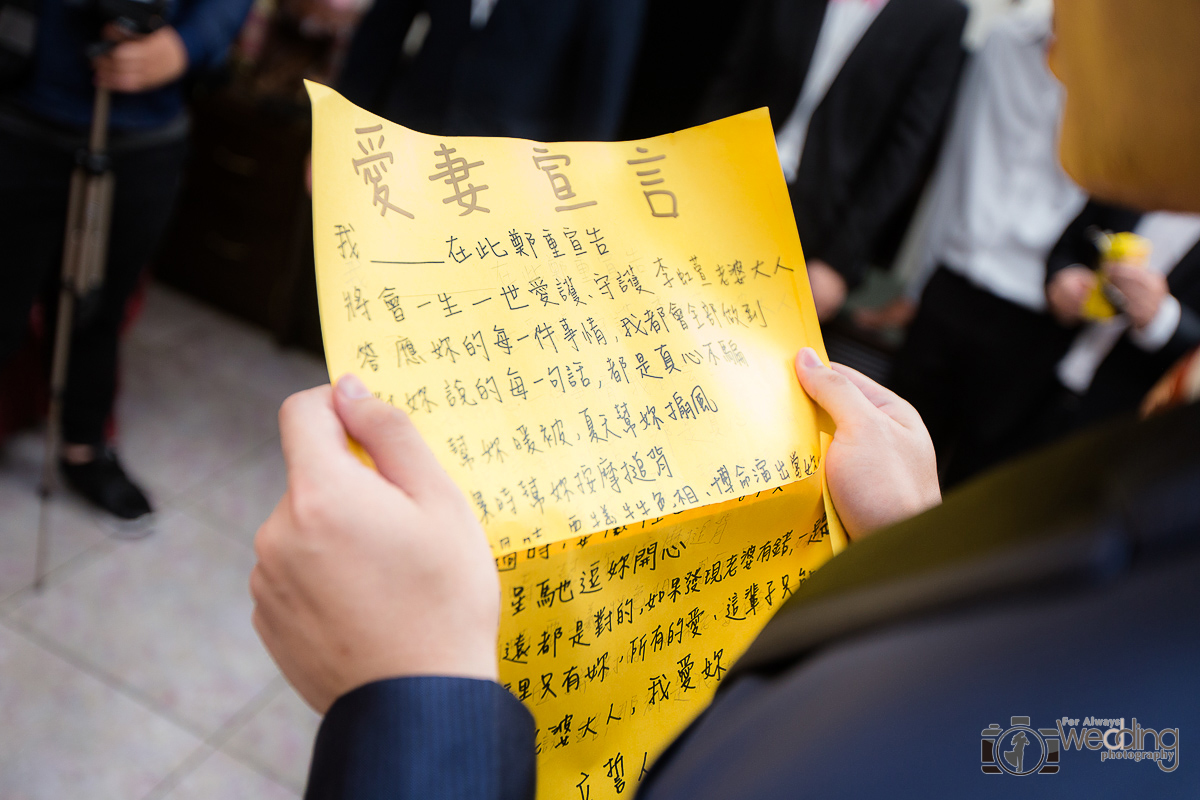 愛妻宣言
我____在此鄭重宣告
將會一生一世愛護、守護 李虹萱 老婆大人
答應妳的每一件事情,我都會全部做到
妳說的每一句話,都是真心不騙
幫妳暖被,夏天幫妳搧風
累時幫妳按摩搥背
時,要犧牲色相、搏命演出當妳
逗妳開心
遠都是對的,如果發現老婆有錯,一定
裡只有妳,所有的愛、這輩子只
老婆大人,我愛妳
立誓人
For Always
Wedding
photography